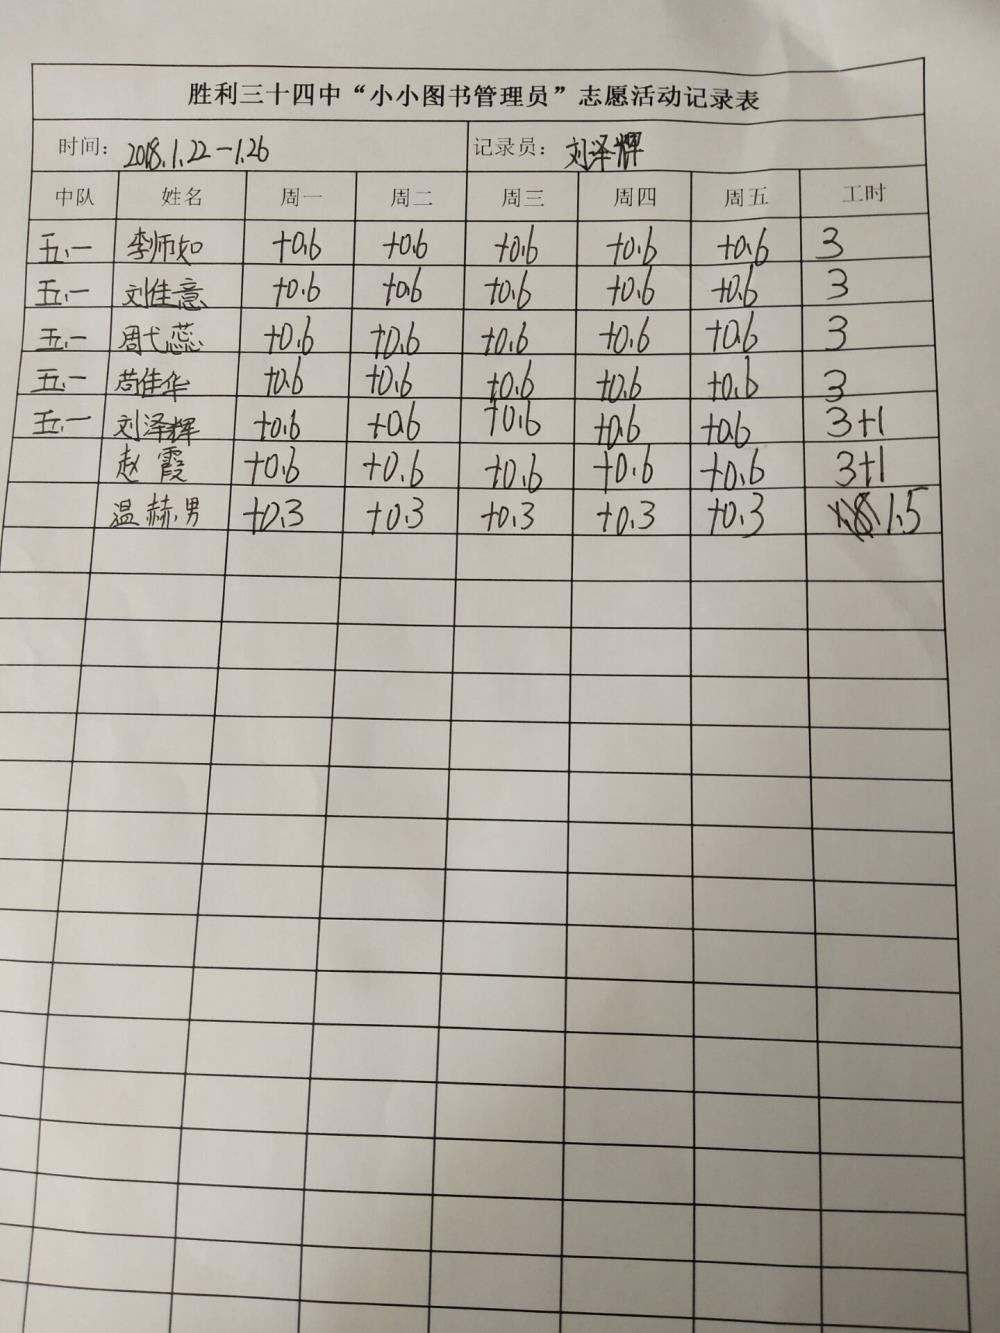 胜利三十四中“小小图书管理员”志愿活动记录表
时间： 2018.1.22-1.26 记录员： 刘泽辉
中队 姓名 周一 周二 周三 周四 周五 工时
五.一 李师如 +0.6 +0.6 +0.6 +0.6 +0.6 3
五.一 刘佳意 +0.6 +0.6 +0.6 +0.6 +0.6 3
五.一 周弋蕊 +0.6 +0.6 +0.6 +0.6 +0.6 3
五.一 苟佳华 +0.6 +0.6 +0.6 +0.6 +0.6 3
五.一 刘泽辉 +0.6 +0.6 +0.6 +0.6 +0.6 3+1
赵霞 +0.6 +0.6 +0.6 +0.6 +0.6 3+1
温赫男 +0.3 +0.3 +0.3 +0.3 +0.3 1.5